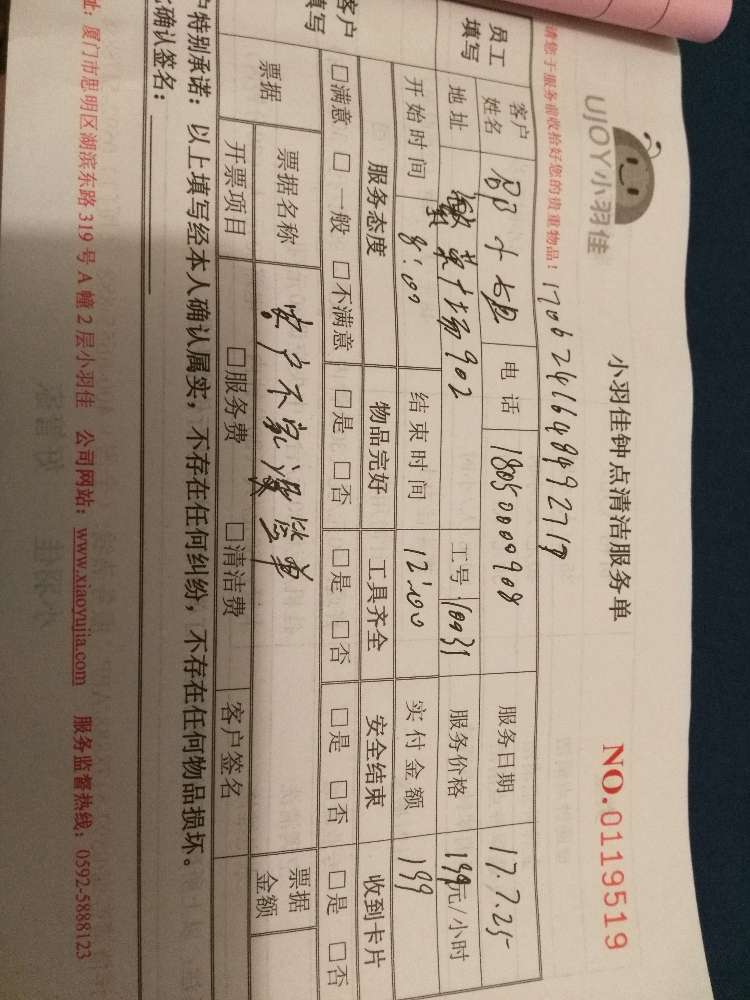 UJOY小羽佳
小羽佳钟点清洁服务单
NO.0119519
请您于服务前收拾好您的贵重物品！
员工填写 客户姓名 电话 18050000908 服务日期 17.7.25
地址 902 工号 服务价格 199元/小时
开始时间 8:00 结束时间 12:00 实付金额 199
客户填写 服务态度 物品完好 工具齐全 安全结束 收到卡片
□满意 □一般 □不满意 □是 □否 □是 □否 □是 □否 □是 □否
票据 票据名称 客户不在 签单 票据金额
开票项目 □服务费 □清洁费 客户签名
户特别承诺：以上填写经本人确认属实，不存在任何纠纷，不存在任何物品损坏。
确认签名：
址：厦门市思明区湖滨东路319号A幢2层小羽佳 公司网站：www.xiaoyujia.com 服务监督热线：0592-5888123